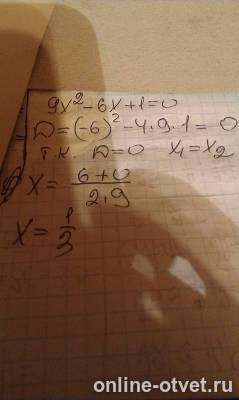 9x² - 6x + 1 = 0
D = (-6)² - 4·9·1 = 0
т.к. D = 0 x₁ = x₂
x = 6+0 / 2·9
x = 1/3
online-otvet.ru